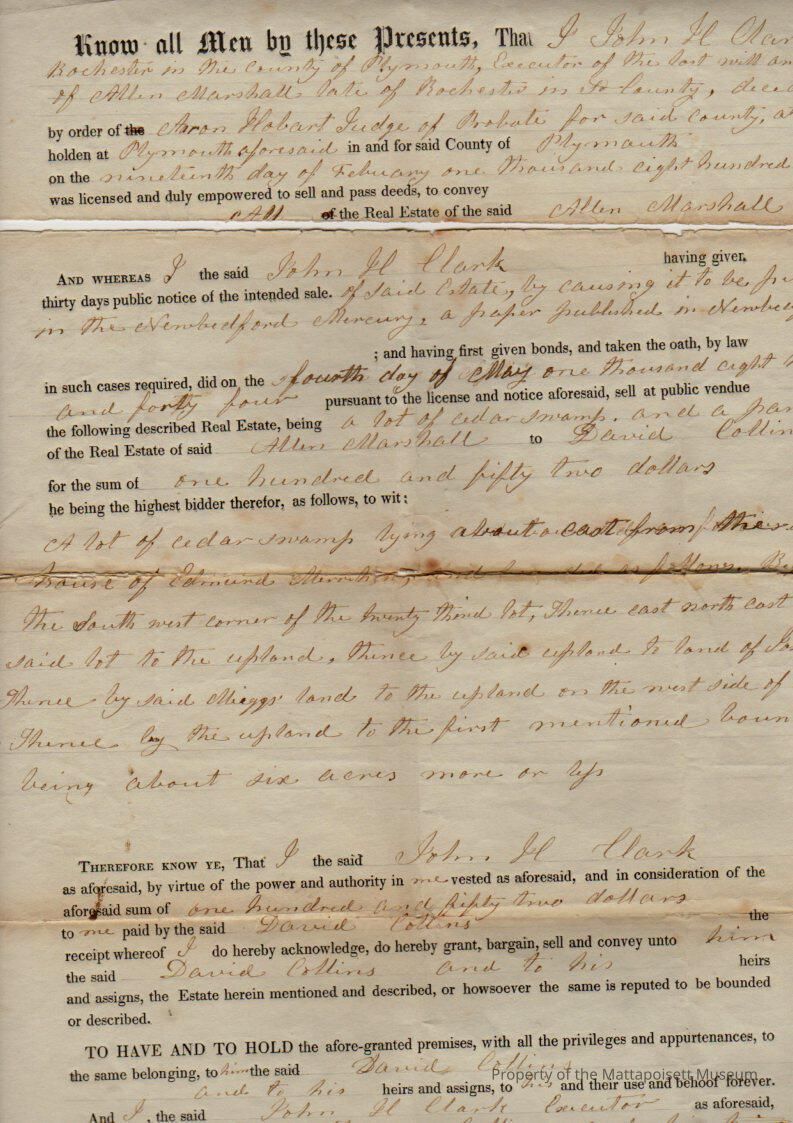 Know all Men by these Presents, That I John H Clar
Rochester in the County of Plymouth, Executor of the last will an
of Allen Marshall late of Rochester in sd County, decea
by order of the Aaron Hobart Judge of Probate for said county, a
holden at Plymouth aforesaid in and for said County of Plymouth
on the nineteenth day of Febuary one thousand eight hundred
was licensed and duly empowered to sell and pass deeds, to convey
All of the Real Estate of the said Allen Marshall
AND WHEREAS I the said John H Clark having given
thirty days public notice of the intended sale. of said Estate, by causing it to be
in the Newbedford Mercury, a paper published in Newbed
; and having first given bonds, and taken the oath, by law
in such cases required, did on the fourth day of May one thousand eight h
and forty four pursuant to the license and notice aforesaid, sell at public vendue
the following described Real Estate, being a lot of cedar swamp, and a par
of the Real Estate of said Allen Marshall to David Collin
for the sum of one hundred and fifty two dollars
he being the highest bidder therefor, as follows, to wit:
A lot of cedar swamp lying about east from the
house of Edmund as follows.
the South west corner of the twenty third lot, Thence east north east
said lot to the upland, thence by said upland to land of
Thence by said Meiggs' land to the upland on the west side of
Thence by the upland to the first mentioned boun
being about six acres more or less
THEREFORE KNOW YE, That I the said John H Clark
as aforesaid, by virtue of the power and authority in me vested as aforesaid, and in consideration of the
aforesaid sum of one hundred and fifty two dollars
to me paid by the said David Collins the
receipt whereof I do hereby acknowledge, do hereby grant, bargain, sell and convey unto him
the said David Collins and to his heirs
and assigns, the Estate herein mentioned and described, or howsoever the same is reputed to be bounded
or described.
TO HAVE AND TO HOLD the afore-granted premises, with all the privileges and appurtenances, to
the same belonging, to him the said David Collins
Property of the Mattapoisett Museum
and to his heirs and assigns, to his and their use and behoof forever.
And I, the said John H Clark Executor as aforesaid,